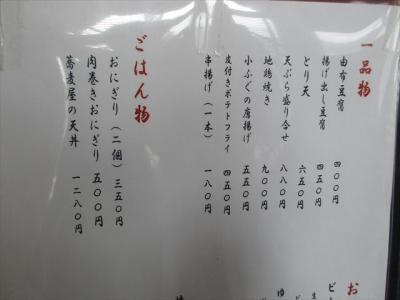 一品物
由布豆腐 四〇〇円
揚げ出し豆腐 四五〇円
とり天 六五〇円
天ぷら盛り合せ 八八〇円
地鶏焼き 九〇〇円
小ふぐの唐揚げ 五五〇円
皮付きポテトフライ 四五〇円
串揚げ（一本） 一八〇円
ごはん物
おにぎり（二個） 三五〇円
肉巻きおにぎり 五〇〇円
蕎麦屋の天丼 一二八〇円